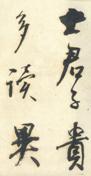 士君子貴
多读異